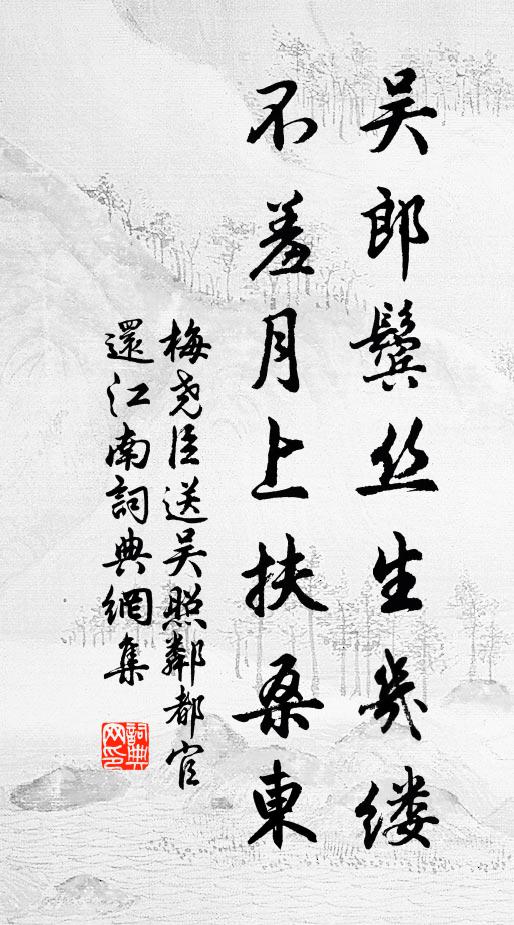 吴郎鬓丝生几缕
不羞月上扶桑東
梅尧臣送吴照鄰都官
還江南詞典網集
詞典
网印